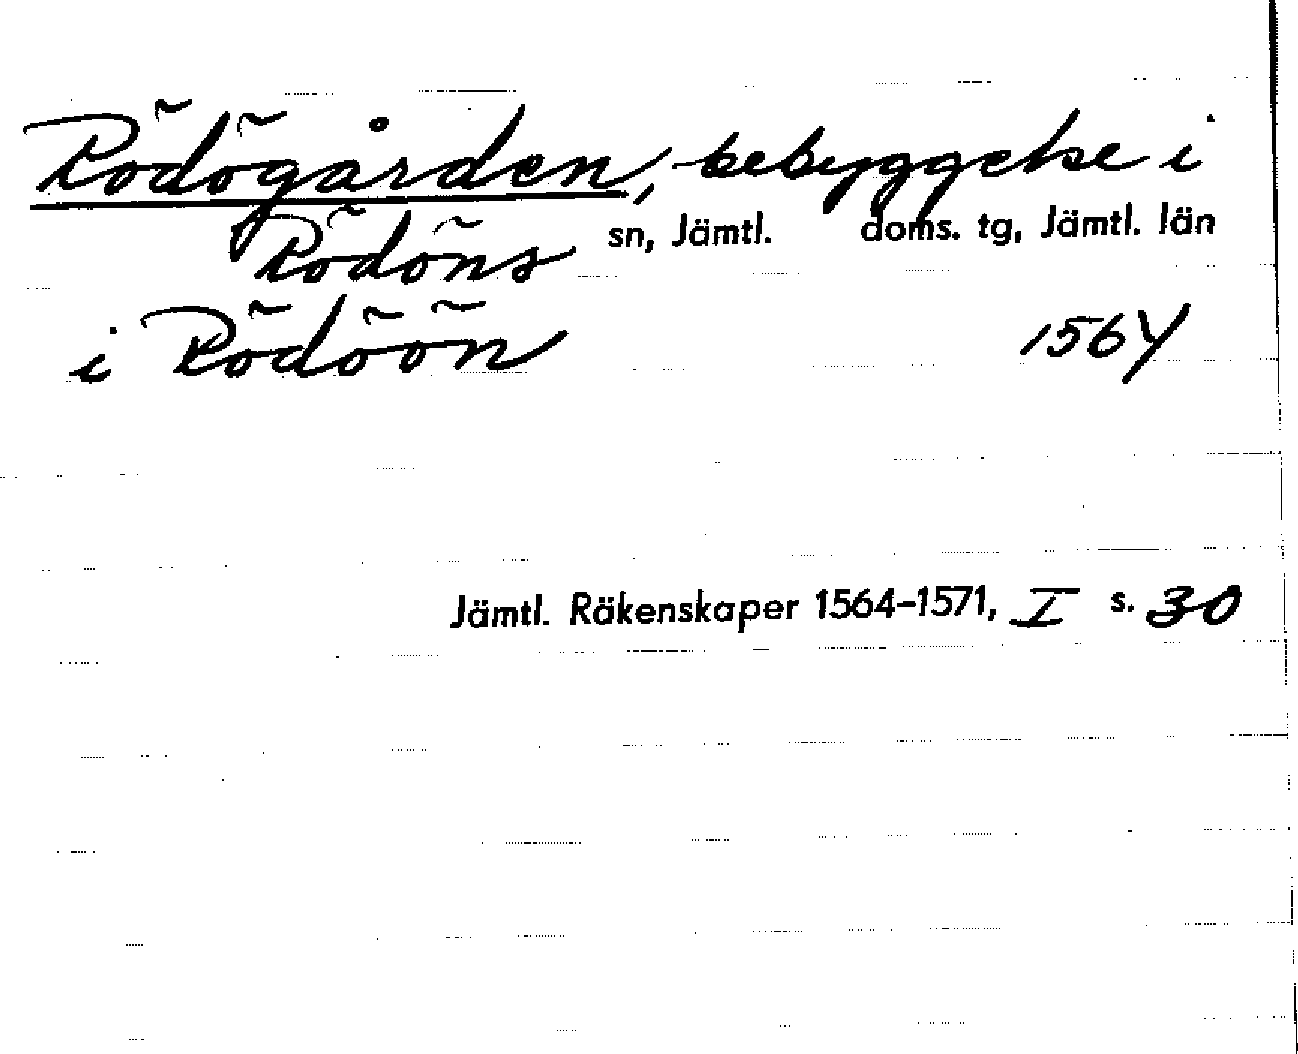 Rödögården, bebyggelse i
Rödöns sn, Jämtl. doms. tg, Jämtl. län
i Rödöön 1564
Jämtl. Räkenskaper 1564-1571, I s. 30